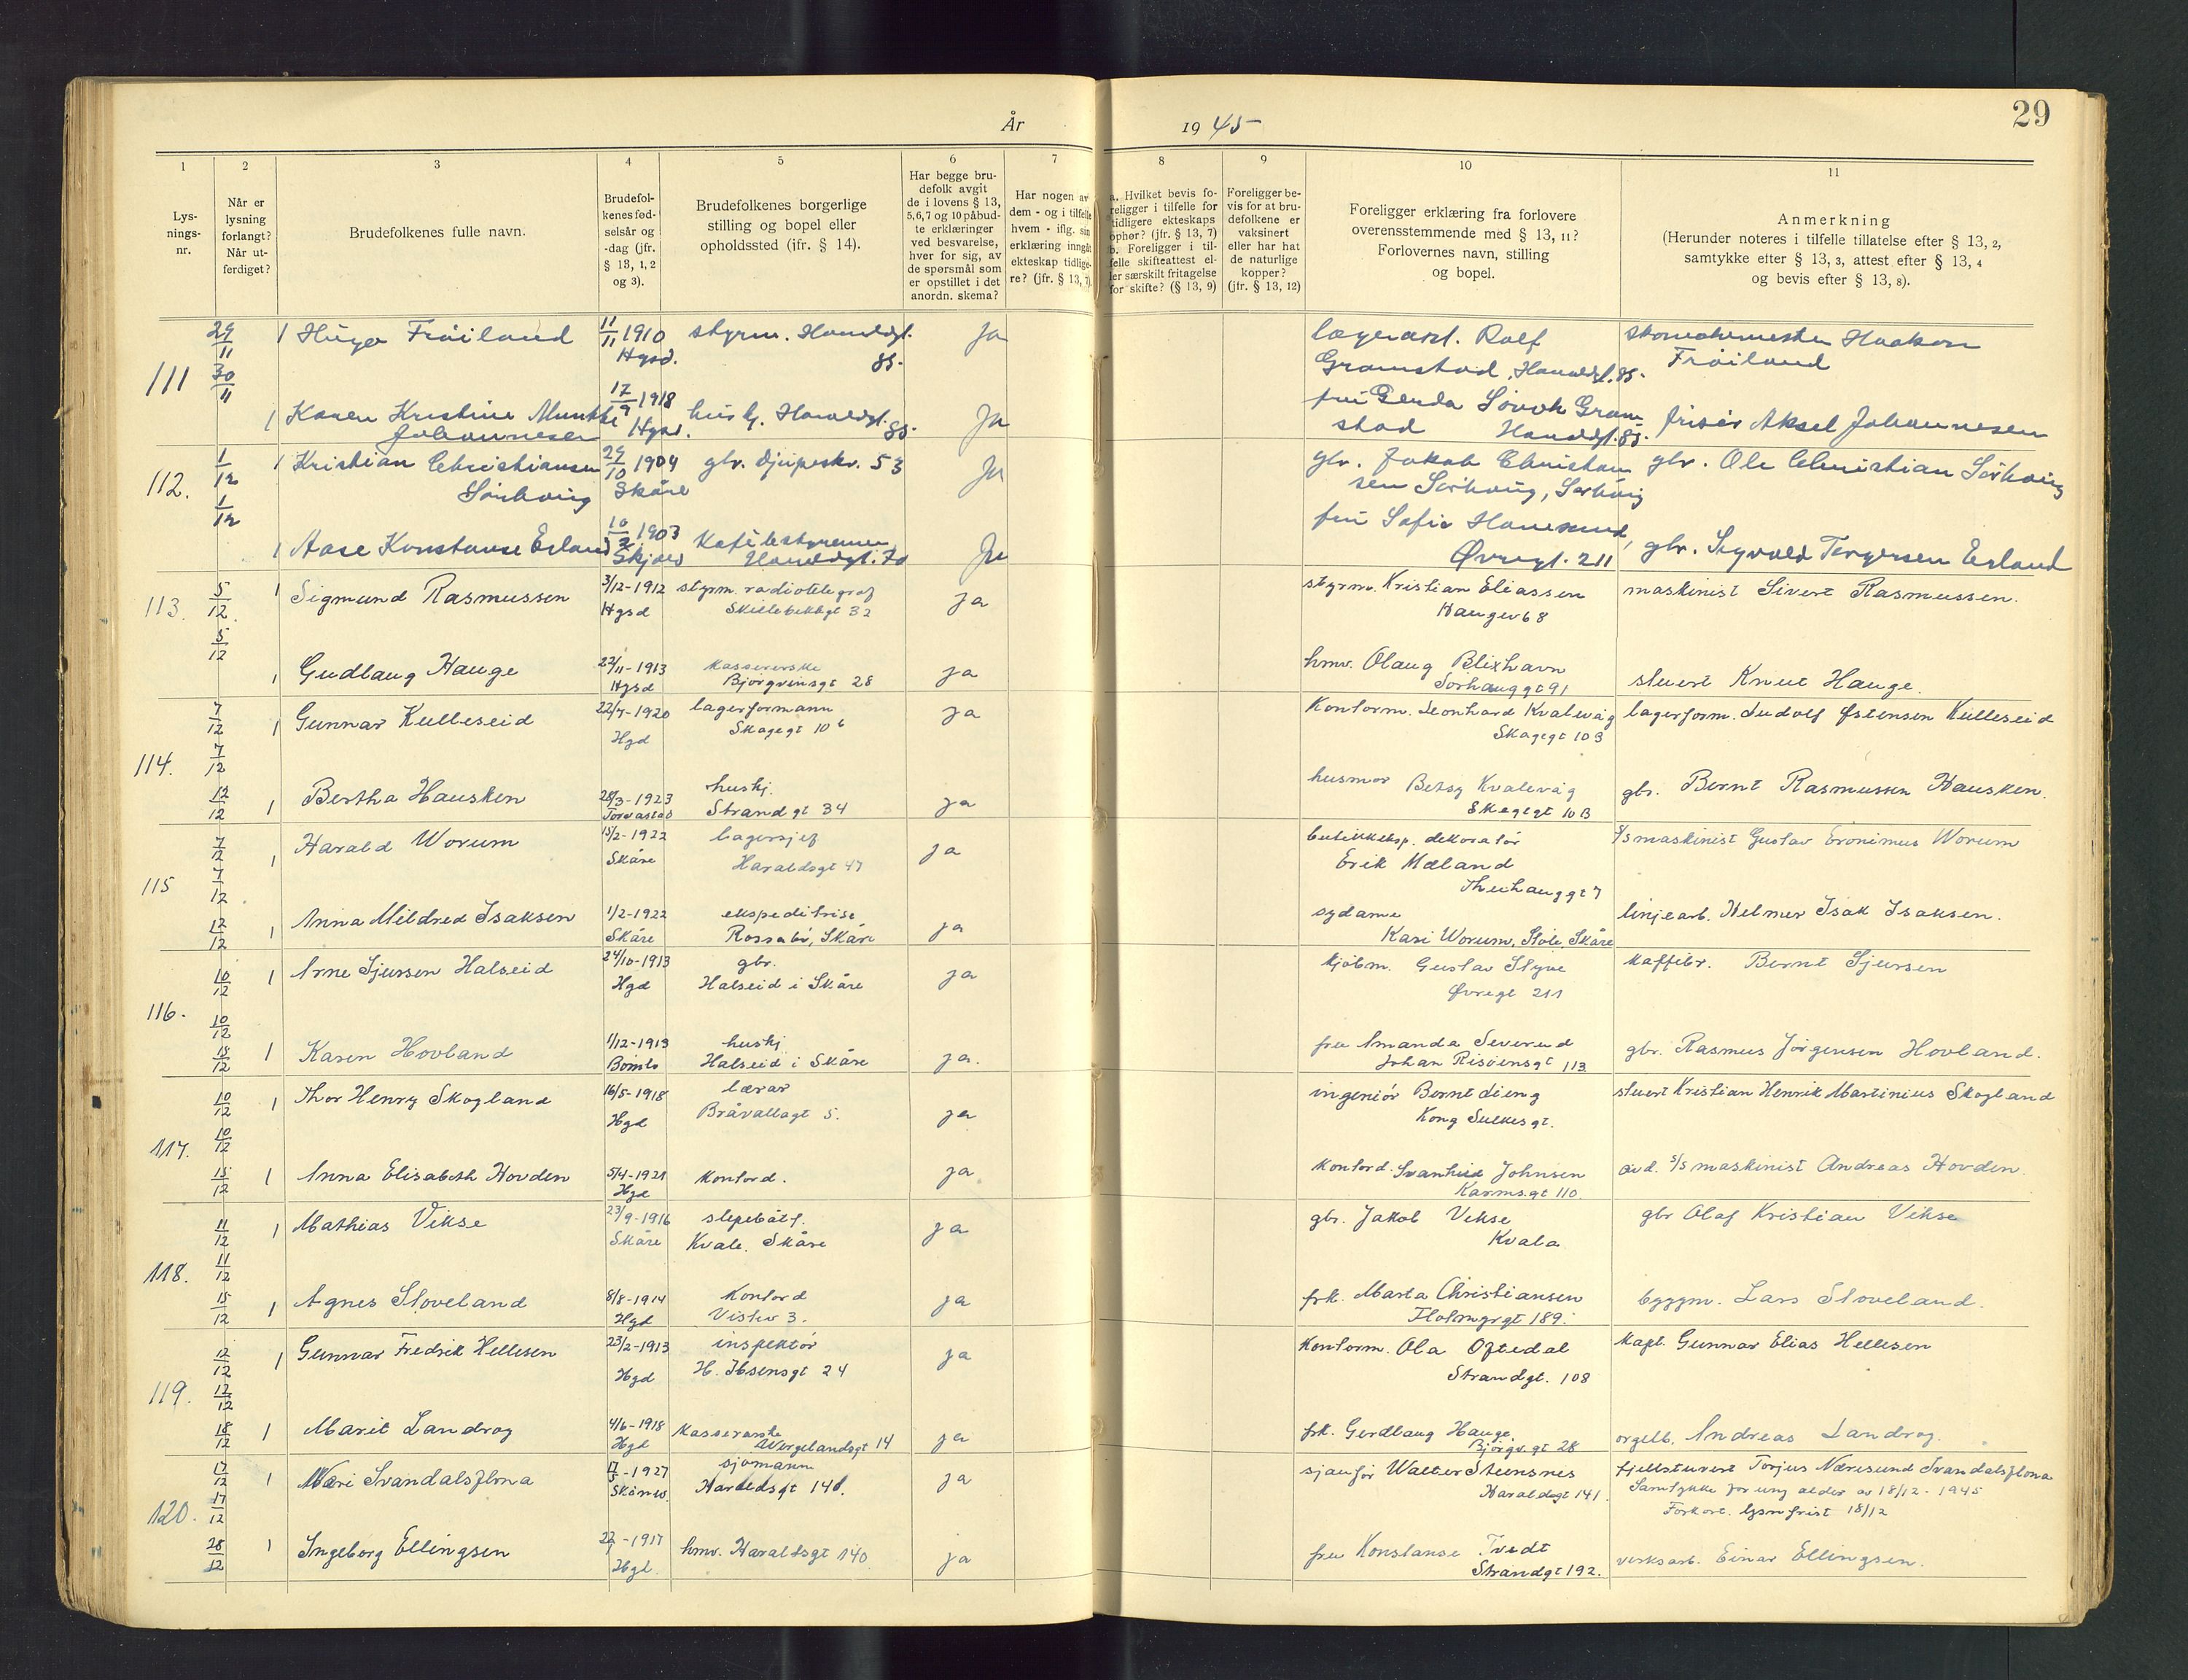 29
År 1945
1
2
3
4
5
6
7
8
9
10
11
Lys-
nings-
nr.
Når er
lysning
forlangt?
Når ut-
ferdiget?
Brudefolkenes fulle navn.
Brudefol-
kenes fød-
selsår og
-dag (jfr.
§ 13, 1, 2
og 3).
Brudefolkenes borgerlige
stilling og bopel eller
opholdssted (jfr. § 14).
Har begge bru-
defolk avgit
de i lovens § 13,
5, 6, 7 og 10 påbud-
te erklæringer
ved besvarelse,
hver for sig, av
de spørsmål som
er opstillet i det
anordn. skema?
Har nogen av
dem - og i tilfelle
hvem - iflg. sin
erklæring inngåt
ekteskap tidlige-
re? (jfr. § 13, 7)
a. Hvilket bevis fo-
religger i tilfelle for
tidligere ekteskaps
ophør? (jfr. § 13, 7)
b. Foreligger i til-
felle skifteattest el-
ler særskilt fritagelse
for skifte? (§ 13, 9)
Foreligger be-
vis for at bru-
defolkene er
vaksinert
eller har hat
de naturlige
kopper?
(jfr. § 13, 12)
Foreligger erklæring fra forlovere
overensstemmende med § 13, 11?
Forlovernes navn, stilling
og bopel.
Anmerkning
(Herunder noteres i tilfelle tillatelse efter § 13, 2,
samtykke efter § 13, 3, attest efter § 13, 4
og bevis efter § 13, 8).
111
29/11
30/11
1 Hugo Frøiland
11/11 1910
Hgsd.
styrm. Haraldsgt.
85.
Ja
lagerarb. Rolf
Gramstad, Haraldsgt. 85.
Haakon
Frøiland
1 Karen Kristine Munkhe
Johannesen
17/9 1918
Hgsd.
husbg. Haraldsgt.
85.
Ja
fru Gerda Lovvh Gram
stad Haraldsgt. 85.
frisør Aksel Johannesen
112.
1/12
1/12
1 Kristian Christiansen
Sørhaug
29/10 1904
Skåre
gbr. Djupaskv. 53
Ja
gbr. Jakob Christian
sen Sørhaug, Sørhaug
gbr. Ole Christian Sørhaug
1 Aase Konstanse Erland
10/2 1903
Skjold
Kafébestyrerinne
Haraldsgt. 70
Ja
fru Sofie
Øvregt. 211
gbr. Sigvald Tergersen Erland
113.
5/12
5/12
1 Sigmund Rasmussen
3/12-1912
Hgsd
styrm. radiotelegraf
Skillebekkgt 32
Ja
styrm. Kristian Eliassen
Haugev 68
maskinist Sivert Rasmussen.
1 Gudlaug Hauge
22/11-1913
Hgsd
kassererske
Bjørgvinsgt 28
ja
hmv. Olaug Blixhavn
Sørhauggt 91
stuert Knut Hauge.
114.
7/12
7/12
1 Gunnar Kulleseid
22/7-1920
Hgd
lagerformann
Skagegt 10 b
ja
Kontorm. Leonhard Kvalevåg
Skagegt 10 B
lagerform. Ludolf Østensen Kulleseid
12/12
1 Bertha Hausken
28/3-1923
Torvastad
hushj.
Strandgt 34
ja
husmor Betsy Kvalevåg
Skagegt 10 B
gbr. Bernt Rasmussen Hausken.
115
7/12
7/12
1 Harald Worum
15/2-1922
Skåre
lagersjef
Haraldsgt 47
ja
butikkeksp. dekoratør
Erik Mæland
Thuhauggt 7
s/s maskinist Gustav Eronimus Worum
12/12
1 Anna Mildred Isaksen
1/2-1922
Skåre
ekspeditrise
Rossabø, Skåre
ja
sydame
Kari Worum, Støle Skåre
linjearb. Helmer Isak Isaksen.
116.
10/12
10/12
1 Arne Sjursen Halseid
24/10-1913
Hgd
gbr.
Halseid i Skåre
ja
kjøbm. Gustav Styve
Øvregt 211
kaffebr. Bernt Sjursen
15/12
1 Karen Hovland
1/12-1913
Bømlo
hushj
Halseid i Skåre
ja.
fru Amanda Severud
Johan Risøensgt 113
gbr. Rasmus Jørgensen Hovland.
117.
10/12
10/12
1 Thor Henry Skogland
16/5-1918
Hgd
lærar
Bråvallagt 5.
ja
ingeniør Bernt Lieng
Kong Sulkesgt.
stuert Kristian Henrik Martinius Skogland
15/12
1 Anna Elisabeth Hovden
5/4-1921
Hgd
kontord.
ja
kontord. Svanhild Johnsen
Karmsgt 110
avd. s/s maskinist Andreas Hovden.
118.
11/12
11/12
1 Mathias Vikse
23/9-1916
Skåre
slepebåtf.
Kvale, Skåre
ja
gbr. Jakob Vikse
Kvala
gbr Olaf Kristian Vikse
15/12
1 Agnes Stoveland
8/8-1914
Hgd
Kontord
Vistv 3.
ja
frk. Marta Christiansen
Flotmyrgt 189.
byggm. Lars Stoveland.
119.
12/12
12/12
1 Gunnar Fredrik Hellesen
23/2-1913
Hgd
inspektør
H. Ibsensgt 24
ja
Kontorm. Ola Oftedal
Strandgt. 108
Kapt. Gunnar Elias Hellesen
18/12
1 Marit Landrog
4/6-1918
Hgd
kasserarske
Wergelandsgt 14
ja
frk. Gerdlaug Hauge.
Bjørgv.gt 28
orgelb. Andreas Landrog.
120.
17/12
17/12
1 Næri Svandalsflona
17/5-1927
sjømann
Haraldsgt 140.
ja
sjauför Walter Steensnes
Haraldsgt 141.
fjellstuvert Torjus Næresund Svandalsflona
Samtykke for ung alder av 18/12-1945
Forkort. lysn frist 18/12
28/12
1 Ingeborg Ellingsen
-1917
Hgd.
hmv. Haraldsgt 140
ja
fru Konstanse Tvedt
Strandgt 192.
verksarb. Einar Ellingsen.